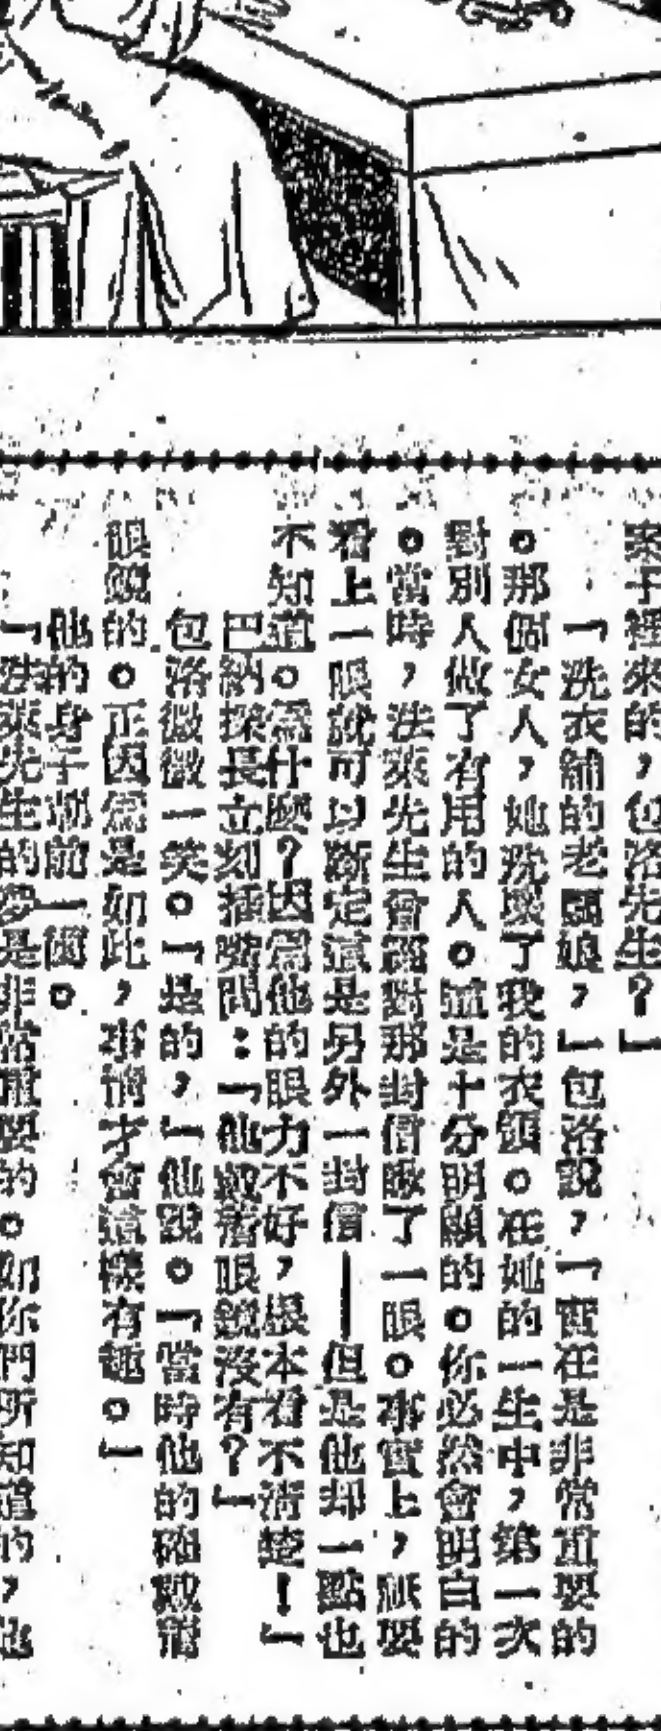 案子裡來的，包洛先生？」
「洗衣舖的老闆娘，」包洛說，「實在是非常重要的
。那個女人，她洗壞了我的衣領。在她的一生中，第一次
對別人做了有用的人。這是十分明顯的。你必然會明白的
。當時，法萊先生曾面對那封信瞅了一眼。事實上，祇要
看上一眼就可以斷定這是另外一封信——但是他却一點也
不知道。為什麼？因為他的眼力不好，根本看不清楚！」
巴納探長立刻插嘴問：「他戴著眼鏡沒有？」
包洛微微一笑。「是的，」他說。「當時他的確戴著
眼鏡的。正因為是如此，事情才會這樣有趣。」
他的身子朝前一傾。
「法萊先生的夢是非常重要的。如你們所知道的，他